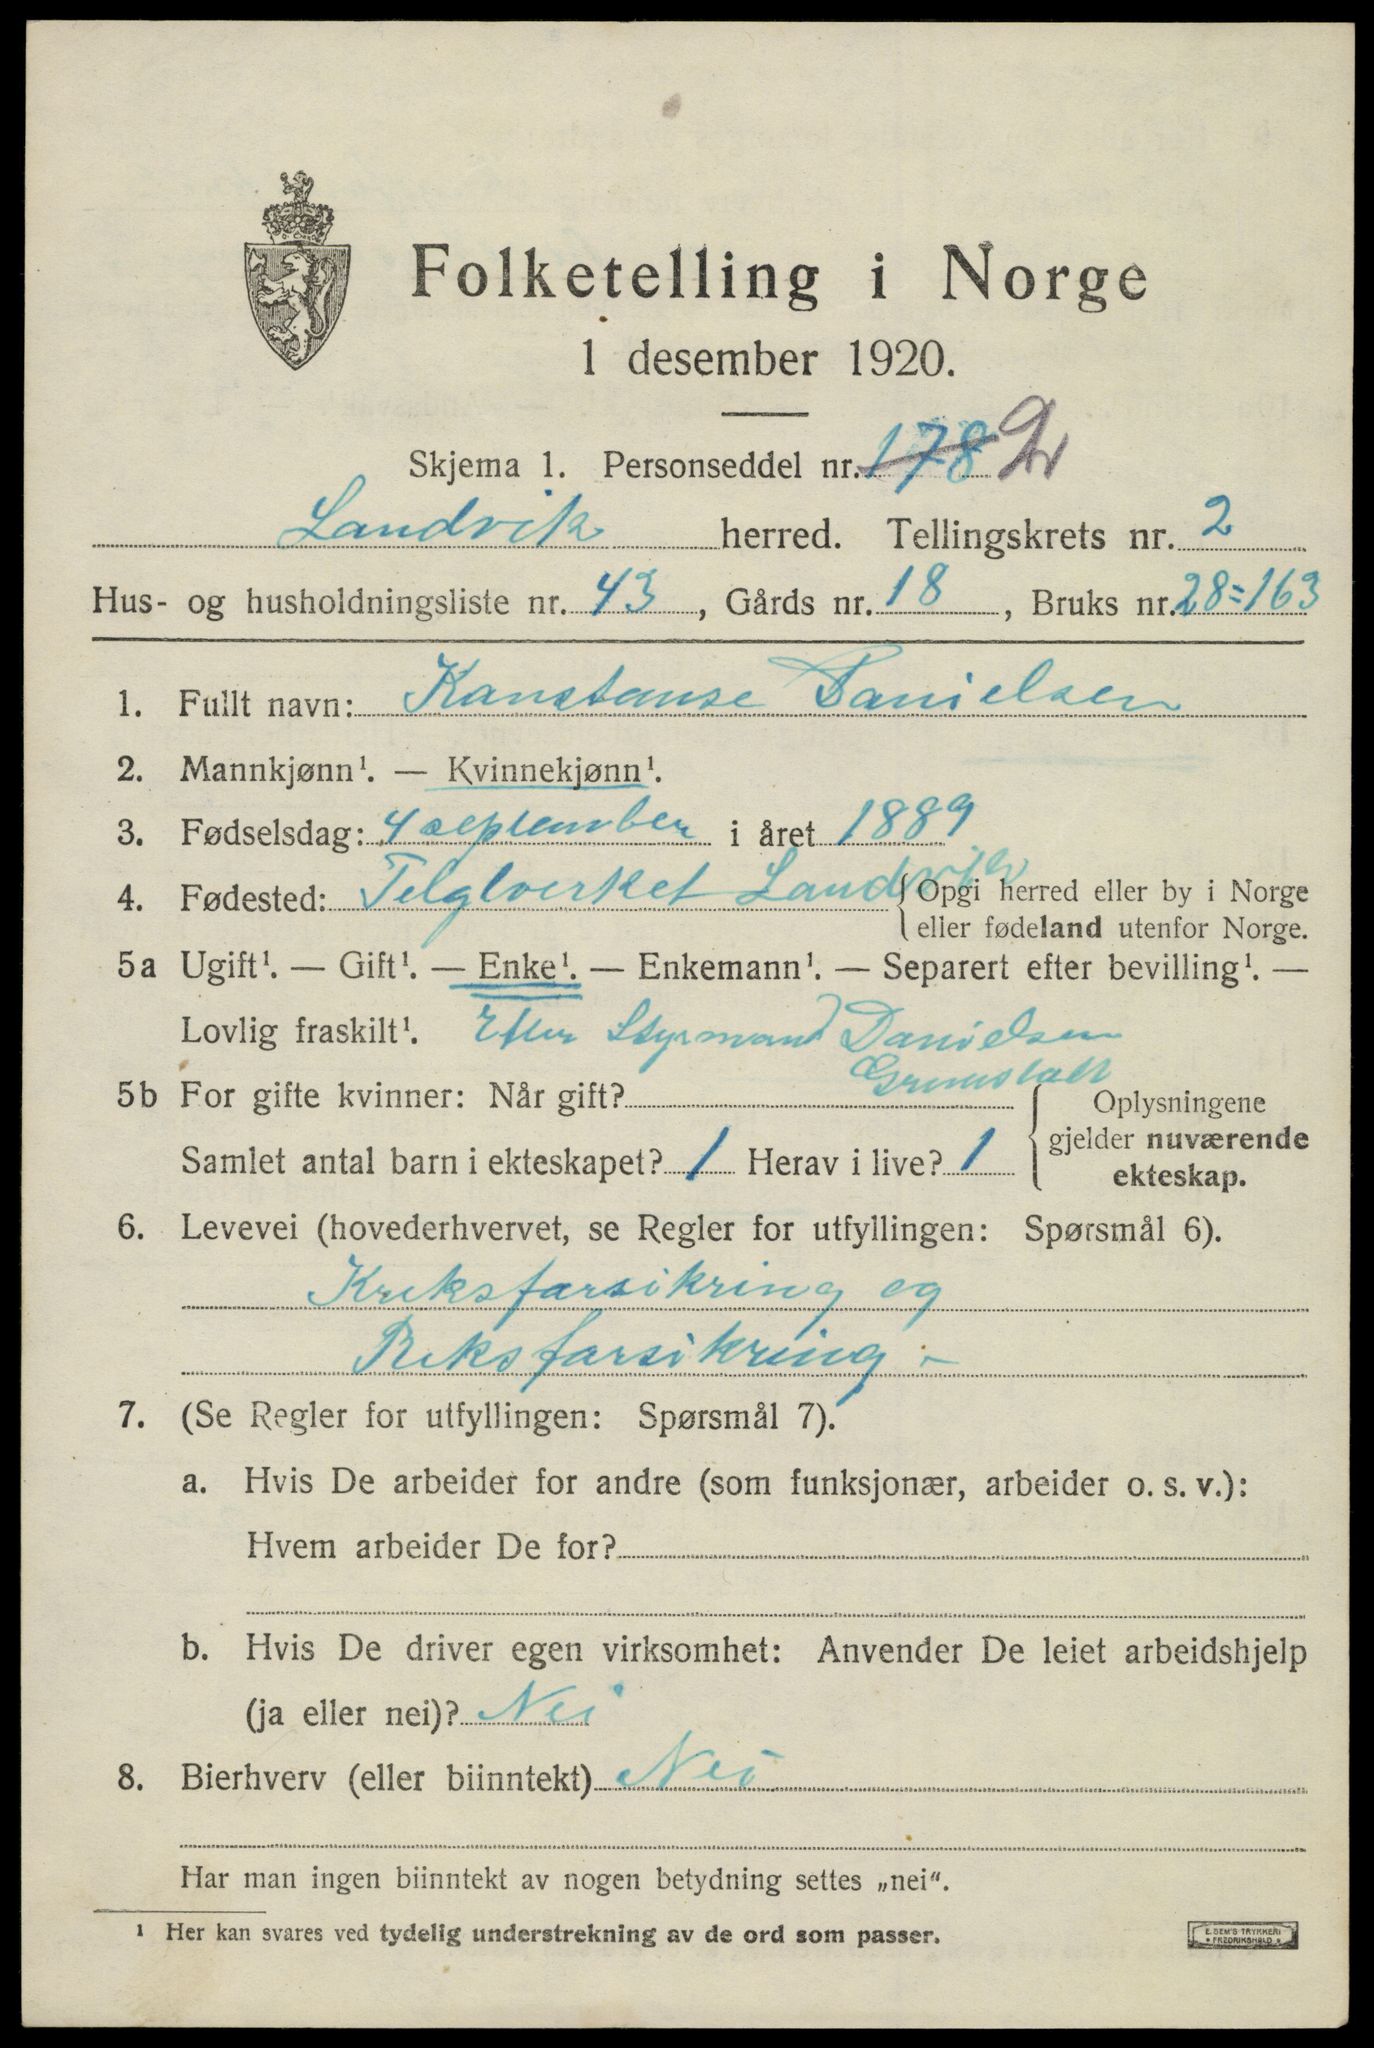 Folketelling i Norge
1 desember 1920.
Skjema 1. Personseddel nr. 178 2
Landvik herred. Tellingskrets nr. 2
Hus- og husholdningsliste nr. 43, Gårds nr. 18, Bruks nr. 28=163
1. Fullt navn: Kanstanse Danielsen
2. Mannkjønn¹. — Kvinnekjønn¹.
3. Fødselsdag: 4 september i året 1889
4. Fødested: Telglverket Landvik {Opgi herred eller by i Norge
eller fødeland utenfor Norge.
5a Ugift¹. — Gift¹. — Enke¹. — Enkemann¹. — Separert efter bevilling¹. —
Lovlig fraskilt¹. Efter Styrmand Danielsen
Grimstadt
5b For gifte kvinner: Når gift? Oplysningene
gjelder nuværende
Samlet antal barn i ekteskapet? 1 Herav i live? 1
ekteskap.
6. Levevei (hovederhvervet, se Regler for utfyllingen: Spørsmål 6).
Kreksfarsikring og
Reksfarsikring -
7. (Se Regler for utfyllingen: Spørsmål 7).
a. Hvis De arbeider for andre (som funksjonær, arbeider o. s. v.):
Hvem arbeider De for?
b. Hvis De driver egen virksomhet: Anvender De leiet arbeidshjelp
(ja eller nei)? Nei
8. Bierhverv (eller biinntekt) Nei
Har man ingen biinntekt av nogen betydning settes „nei“.
¹ Her kan svares ved tydelig understrekning av de ord som passer.
E. SEM'S TRYKKERI
FREDRIKSHALD